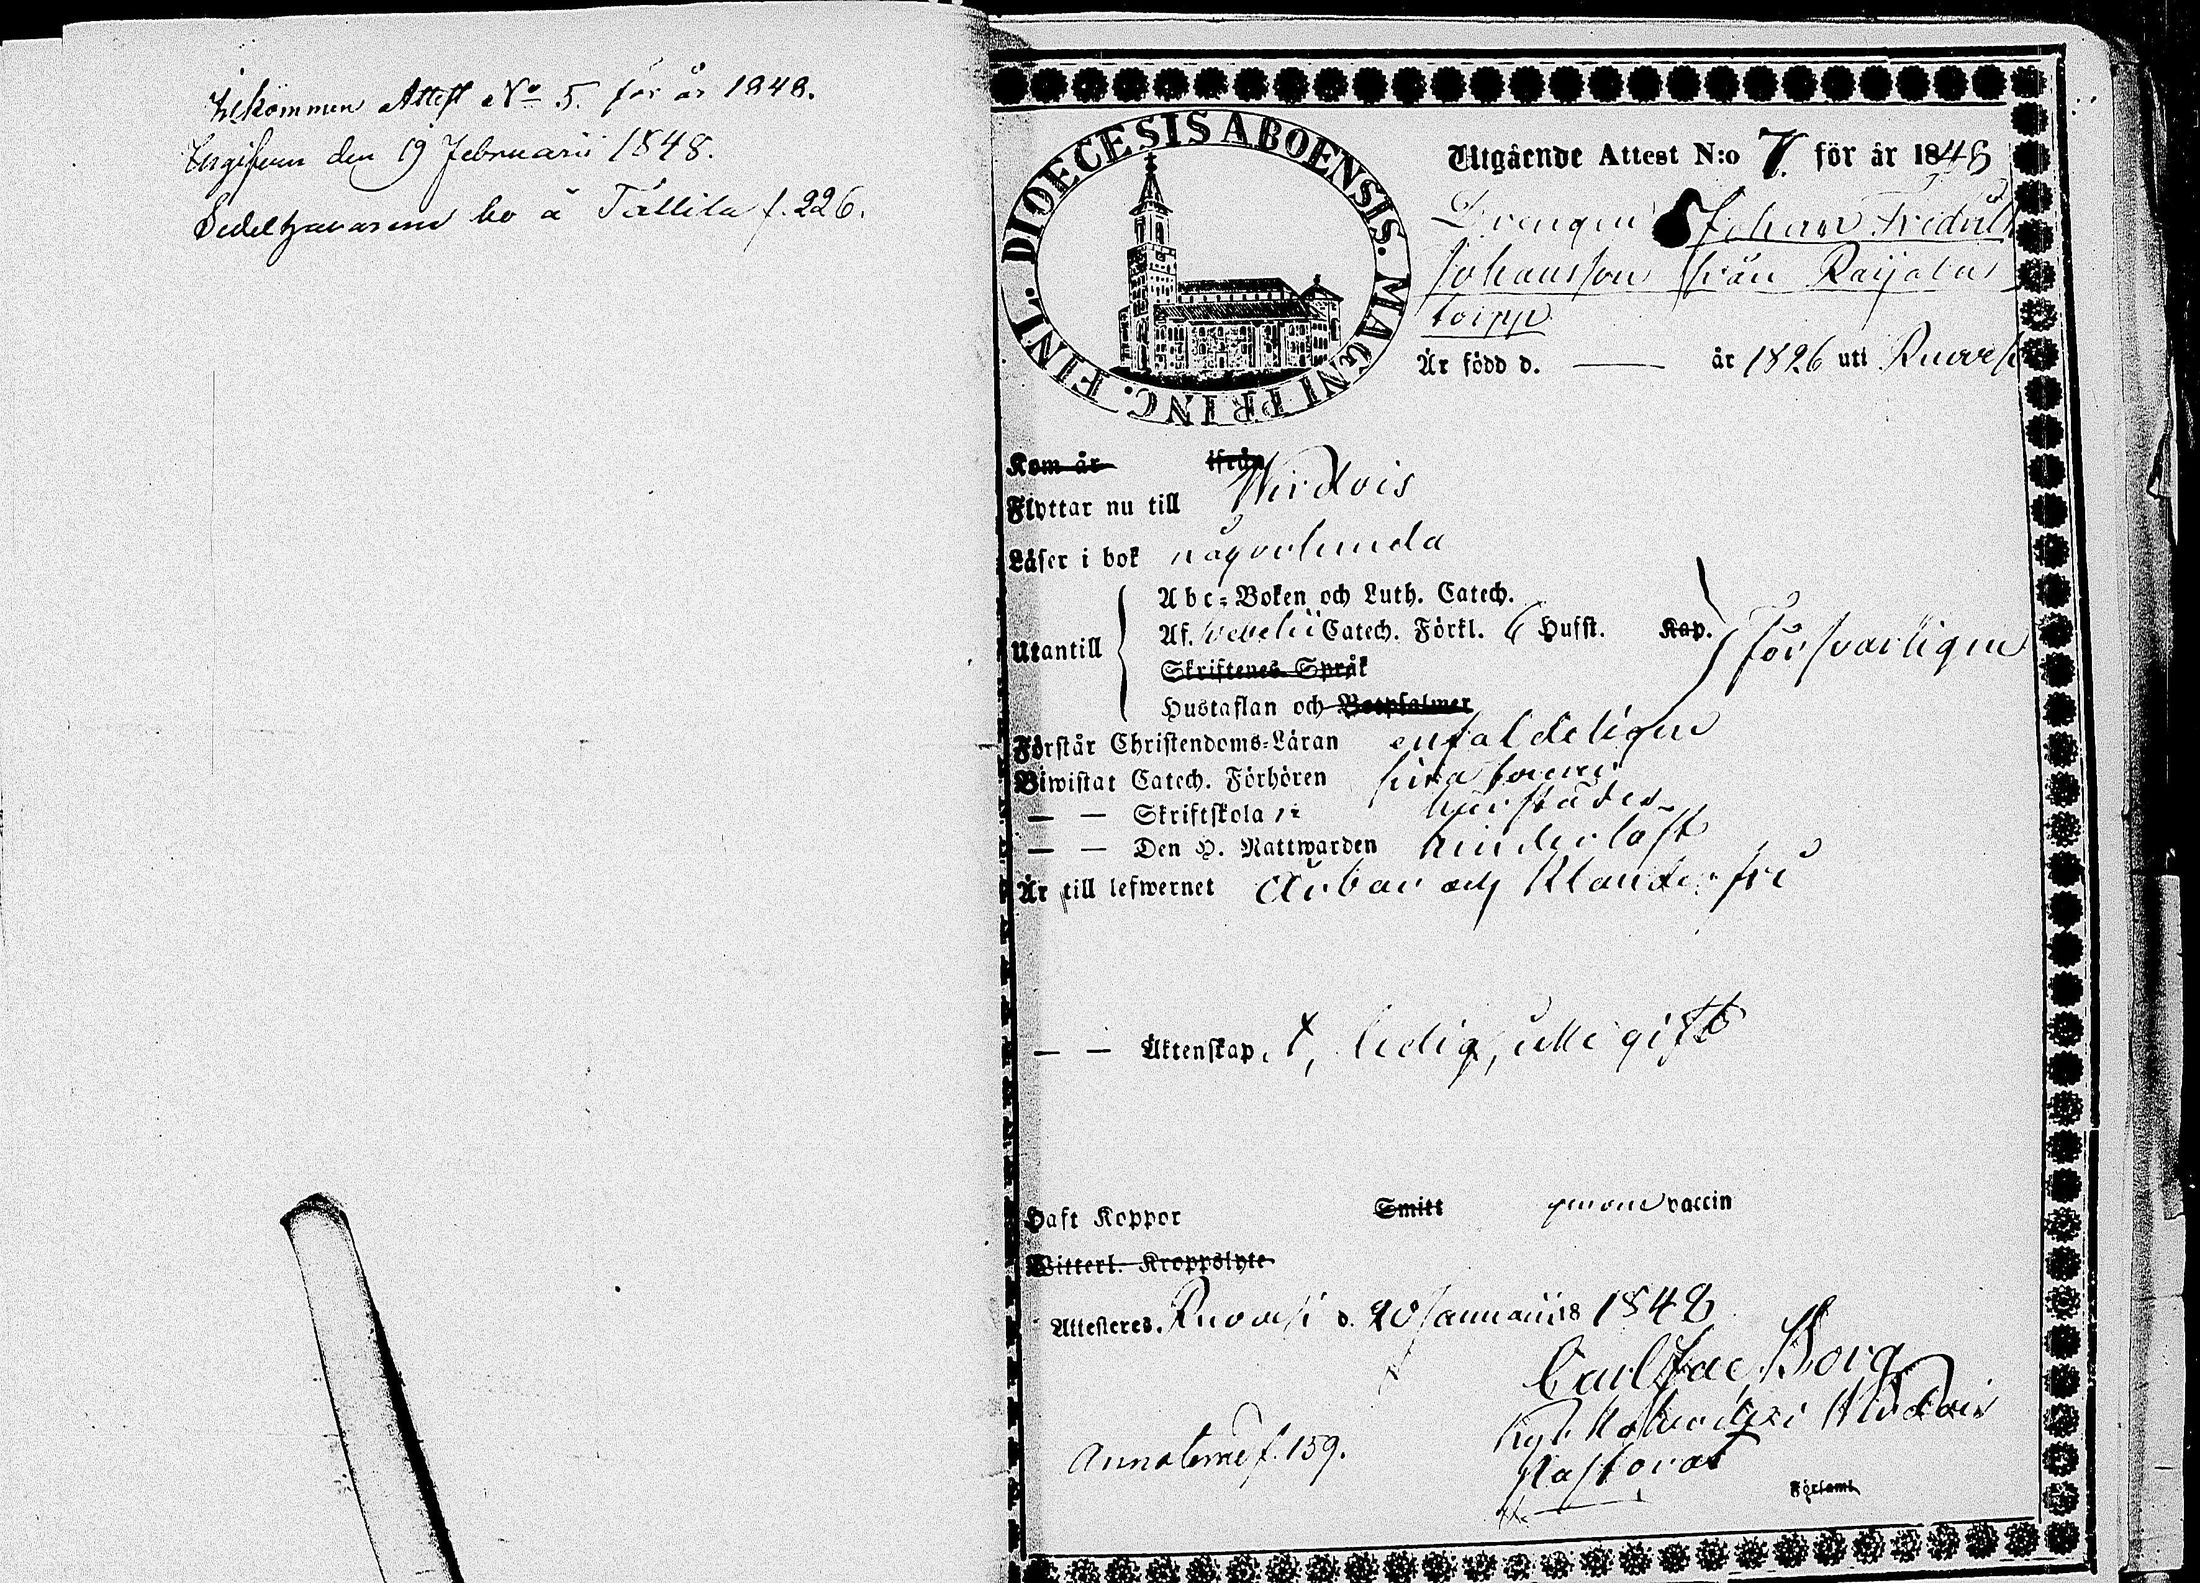 Inkommen Attest No 5. för år 1848.
den 19 Februarii 1848.
Sedelhavaren bo å Tällila f. 226.
DIOECESIS ABOENSIS. MAGNI PRINC. FINL.
Utgående Attest N:o 7. för år 1848
Drengen Johan Fredrik
Johansson från Raijala
torpp
Är född d. — år 1826 uti Ruovesi
Kom år ifrån
Flyttar nu till Wirdois
Läser i bok någorlunda
Abc-Boken och Luth. Catech.
Utantill Af. Svebelii Catech. Förkl. 6 Hufst. Kap. Försvarligen
Skriftenes Språk
Hustaflan och Botpsalmer
Förstår Christendoms-Läran enfaldeligen
Biwistat Catech. Förhören sina
— — Skriftskola härstädes
— — Den H. Nattwarden hinderlöst
Är till lefwernet ärbar och klanderfri
— — Äktenskap, ledig, icke gift
Haft Koppor Smitt genom vaccin
Witterl. Kroppslyte
Attesteres. Ruovesi d. 20 Januarii 1848
Carl Jac Borg
i Wirdois
Pastorat
Annoterad f. 159.
Församl.